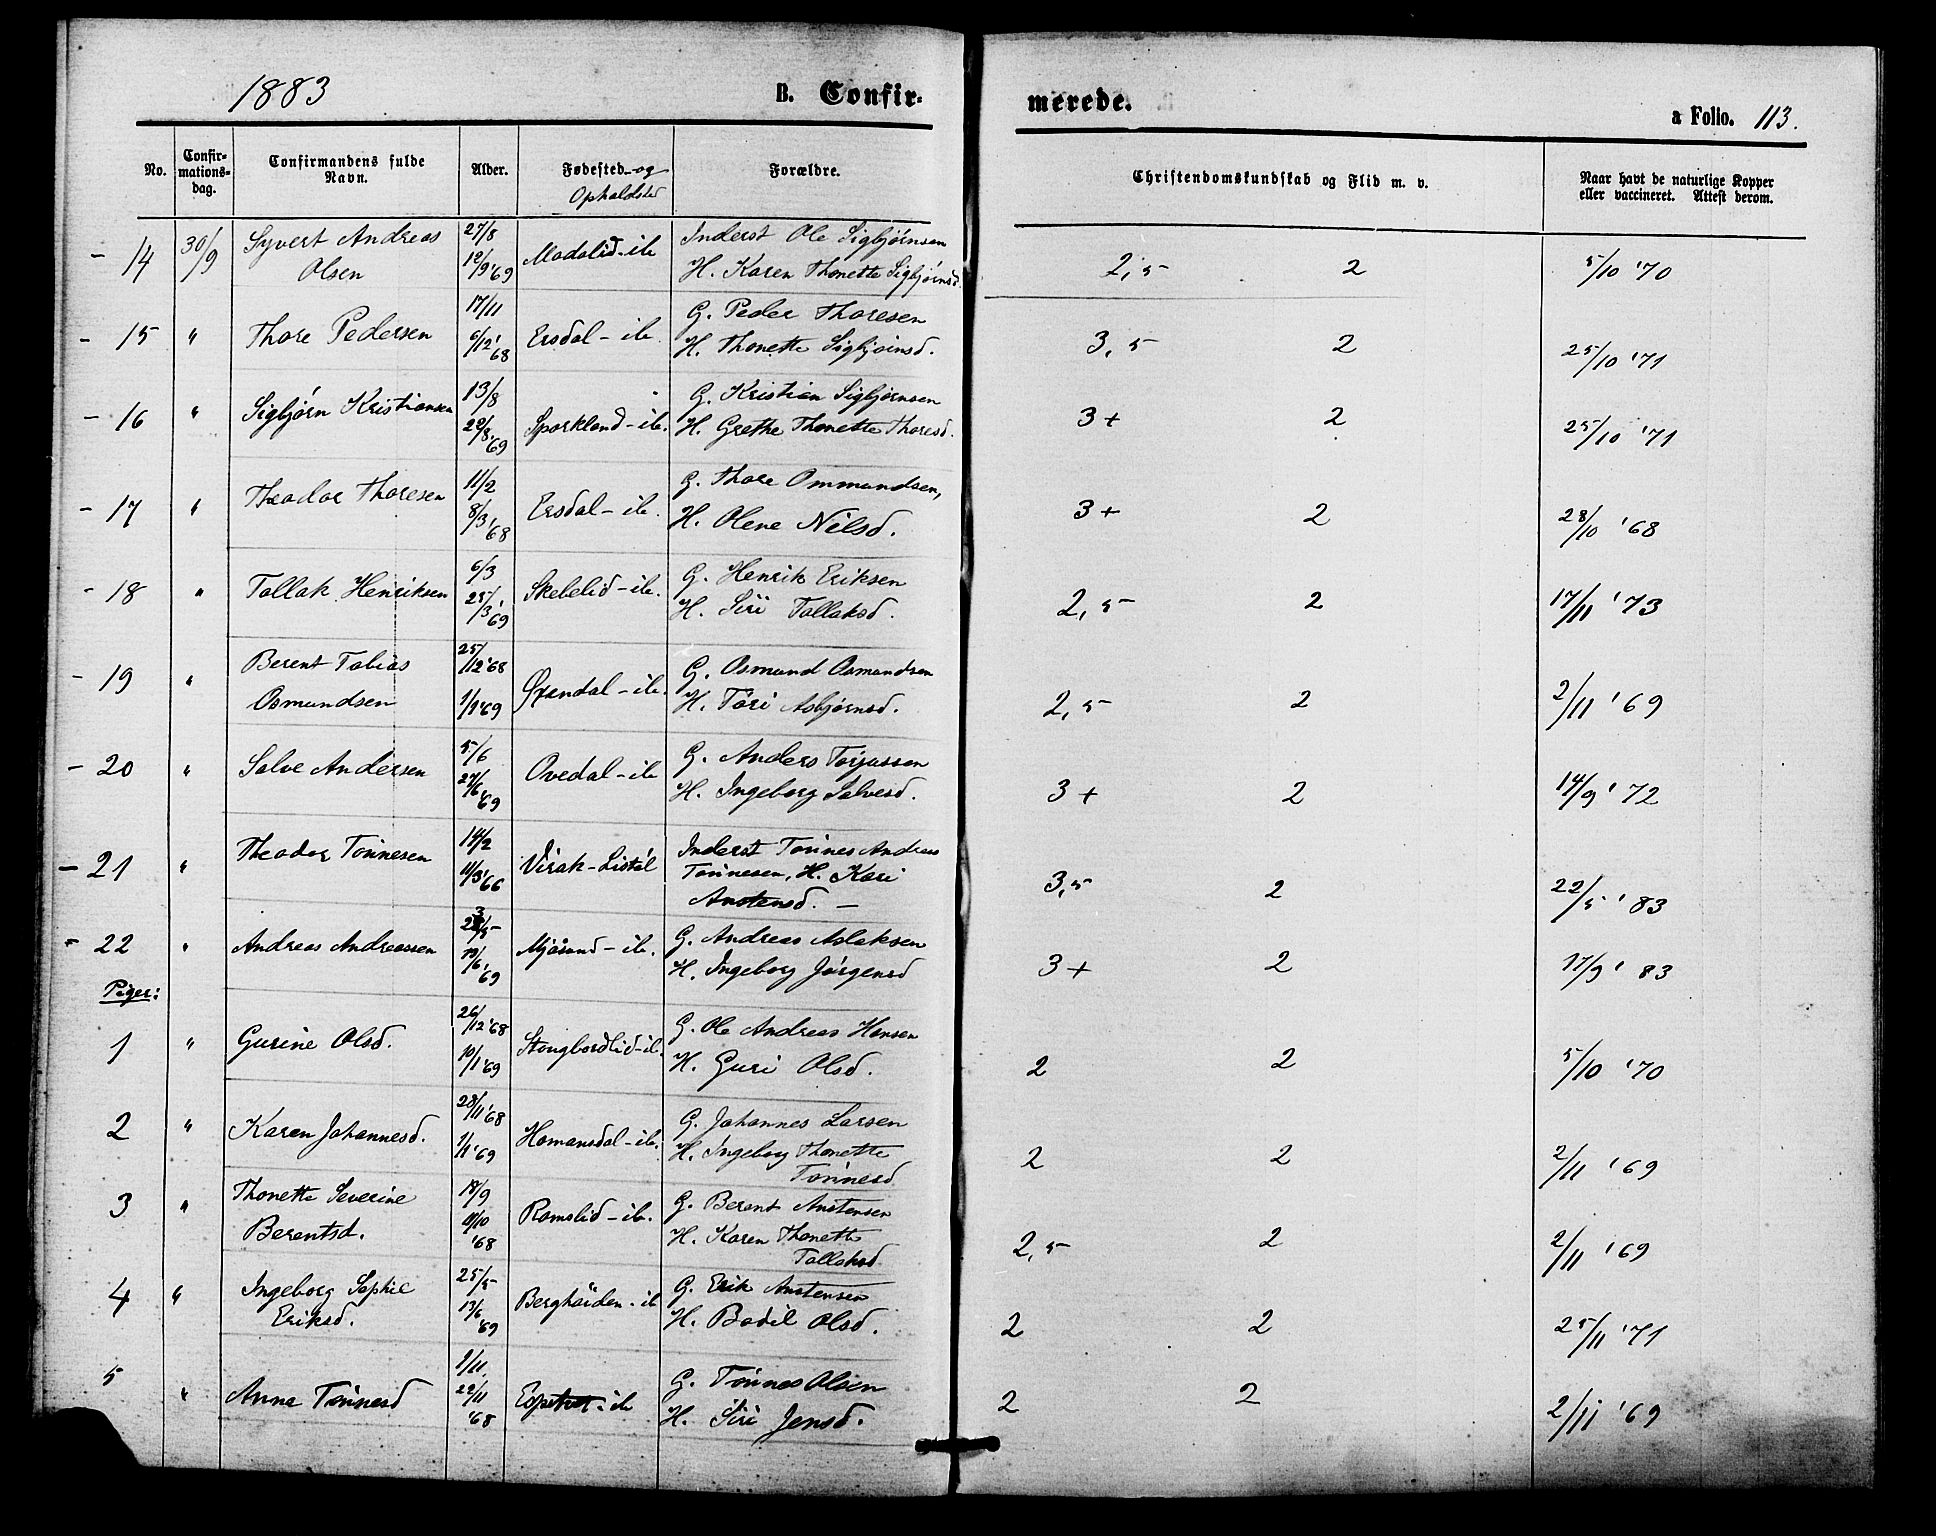 1883 B. Confir- merede. a Folio. 113.
No. Confir-mations-dag. Confirmandens fulde Navn. Alder. Fødested og Opholdsted Forældre. Christendomskundskab og Flid m. v. Naar havt de naturlige Kopper eller vaccineret. Attest derom.
- 14 30/9 Syvert Andreas 27/8 Modalid - ib Inderst Ole Sigbjørnsen 2,5 2 5/10 '70
Olsen 12/9 '69 H. Karen Thonette Sigbjørnsd.
- 15 " Thore Pedersen 17/11 Ersdal - ib. G. Peder Thoresen 3,5 2 25/10 '71
6/12 '68 H. Thonette Sigbjørnsd.
- 16 " Sigbjørn Kristiansen 13/8 Sporkland - ib. G. Kristian Sigbjørnsen 3+ 2 25/10 '71
22/8 '69 H. Grethe Thonette Thoresd.
- 17 " Theodor Thoresen 11/2 Ersdal - ib. G. Thore Ommundsen, 3+ 2 28/10 '68
8/3 '68 H. Olene Nilsd.
- 18 " Tallak Henriksen 6/3 Skebelid - ib. G. Henrik Eriksen 2,5 2 17/11 '73
25/3 '69 H. Siri Tallaksd.
- 19 " Berent Tobias 25/12 '68 Øxendal - ib. G. Osmund Osmundsen 2,5 2 2/11 '69
Osmundsen 1/1 '69 H. Tori Asbjørnsd.
- 20 " Salve Andersen 5/6 Ovedal - ib G. Anders Torjussen 3+ 2 14/9 '72
27/6 '69 H. Ingeborg Salvesd.
- 21 " Theodor Tønnesen 14/2 Virak - Listøl Inderst Tønnes Andreas 3,5 2 22/5 '83
11/3 '66 Tønnesen, H. Kari
Anstensd. -
- 22 " Andreas Andreassen 23/5 Mjåsund - ib. G. Andreas Aslaksen 3+ 2 17/9 '83
19/6 '69 H. Ingeborg Jørgensd
Piger:
1 " Gurine Olsd. 26/12 '68 Stongbordlid - ib. G. Ole Andreas Hansen 2 2 5/10 '70
10/1 '69 H. Guri Olsd.
2 " Karen Johannesd. 28/11 '68 Homansdal - ib. G. Johannes Larsen 2 2 2/11 '69
1/1 '69 H. Ingeborg Thonette
Tønnesd
3 " Thonette Severine 18/9 Romslid - ib. G. Berent Anstensen 2,5 2 2/11 '69
Berentsd. 11/10 '68 H. Karen Thonette
Tallaksd
4 " Ingeborg Sophie 25/5 Berghøiden - ib G. Erik Anstensen 2 2 25/11 '71
Eriksd. 13/6 '69 H. Bodil Olsd.
5 " Anne Tønnesd 1/11 ib G. Tønnes Olsen 2 2 2/11 '69
22/11 '68 H. Siri Jensd.